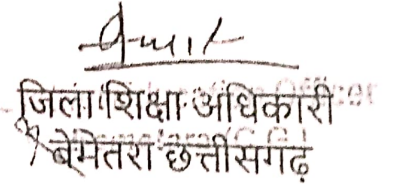 जिला शिक्षा अधिकारी
बेमेतरा छत्तीसगढ़